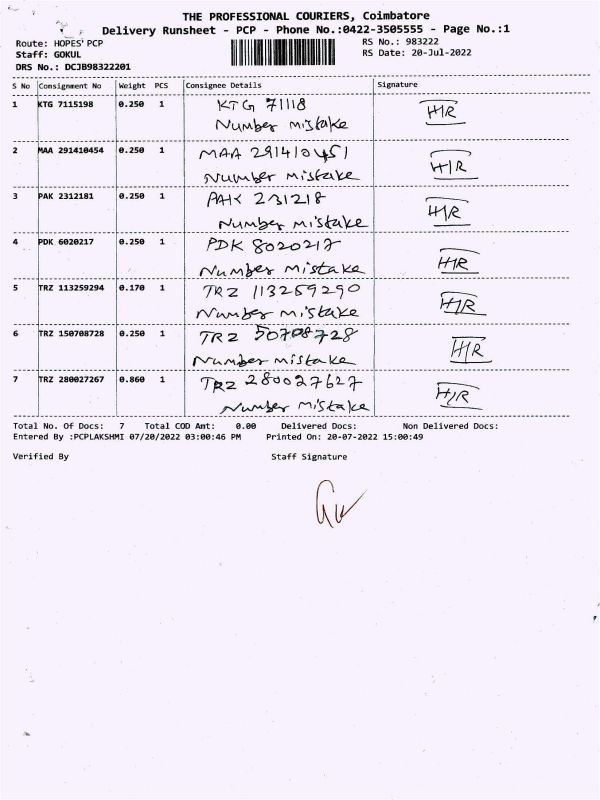 THE PROFESSIONAL COURIERS, Coimbatore
Delivery Runsheet - PCP - Phone No.:0422-3505555 - Page No.:1
Route: HOPES PCP
Staff: GOKUL
DRS No.: DCJB98322201
RS No.: 983222
RS Date: 20-Jul-2022
S No Consignment No Weight PCS Consignee Details Signature
1 KTG 7115198 0.250 1 KTG 71118 H/R
Number mistake
2 MAA 291410454 0.250 1 MAA 291410451 H/R
Number mistake
3 PAK 2312181 0.250 1 PAK 231218 H/R
Number mistake
4 PDK 6020217 0.250 1 PDK 8020217 H/R
Number mistake
5 TRZ 113259294 0.170 1 TRZ 113259290 H/R
Number mistake
6 TRZ 150708728 0.250 1 TRZ 50708728 H/R
Number mistake
7 TRZ 280027267 0.860 1 TRZ 280027627 H/R
Number mistake
Total No. Of Docs: 7 Total COD Amt: 0.00 Delivered Docs: Non Delivered Docs:
Entered By :PCPLAKSHMI 07/20/2022 03:00:46 PM Printed On: 20-07-2022 15:00:49
Verified By Staff Signature